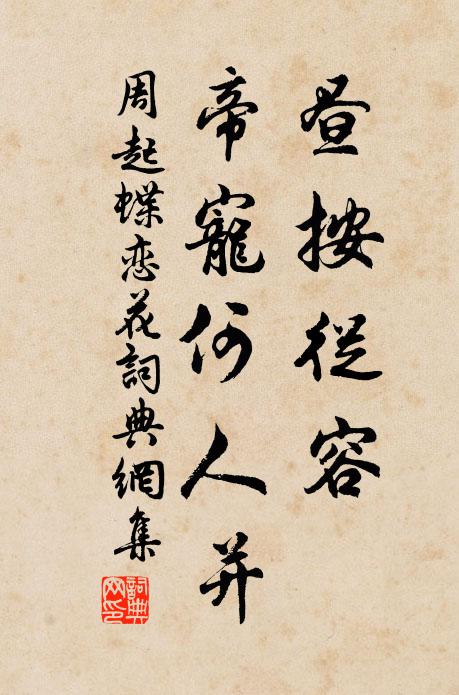 昼按從容
帝寵何人并
周起蝶恋花詞典網集
詞典
网印